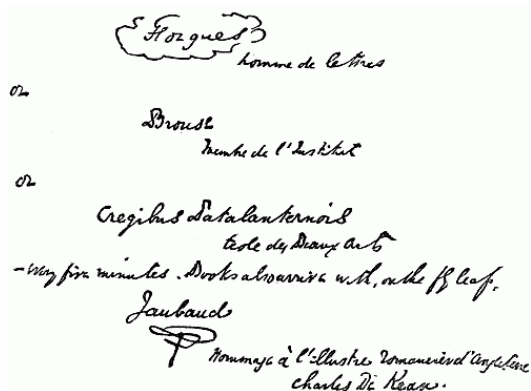 Forgues
homme de lettres
or
Brouse
membre de l'Institut
or
Cregibus Patalanternois
Ecole des Beaux Arts
—every five minutes. Books also arrive with, on the fly leaf,
Jaubaud
Hommage à l'illustre Romancier d'Angleterre
Charles De Kean.